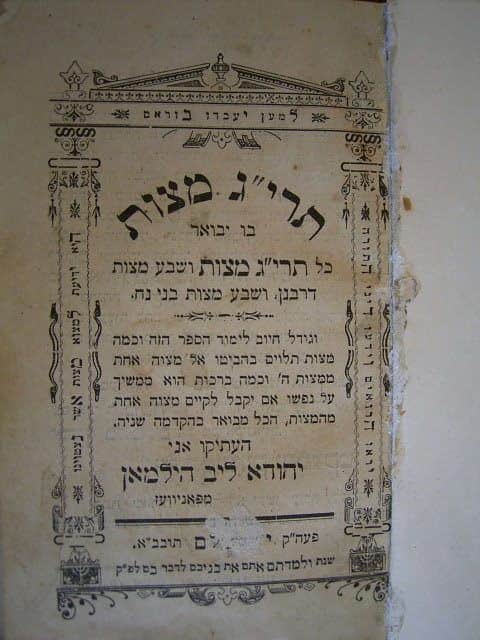 למען יעבדו בוראם
תרי"ג מצות
בו יבואר
כל תרי"ג מצות ושבע מצות
דרבנן, ושבע מצות בני נח.
וגודל חיוב לימוד הספר הזה וכמה
מצות תלוים בהביטו אל מצוה אחת
ממצות ה' וכמה ברכות הוא ממשיך
על נפשו אם יקבל לקיים מצוה אחת
מהמצות, הכל מבואר בהקדמה שניה.
העתיקו אני
יהודא ליב הילמאן
מפאניוועז
פעה"ק תובב"א.
שנת ולמדתם אתם את בניכם לדבר בם לפ"ק
יראו הבאים וידעו דיני התורה
היא ידיעת למצוא מצות אשר נצטוינו